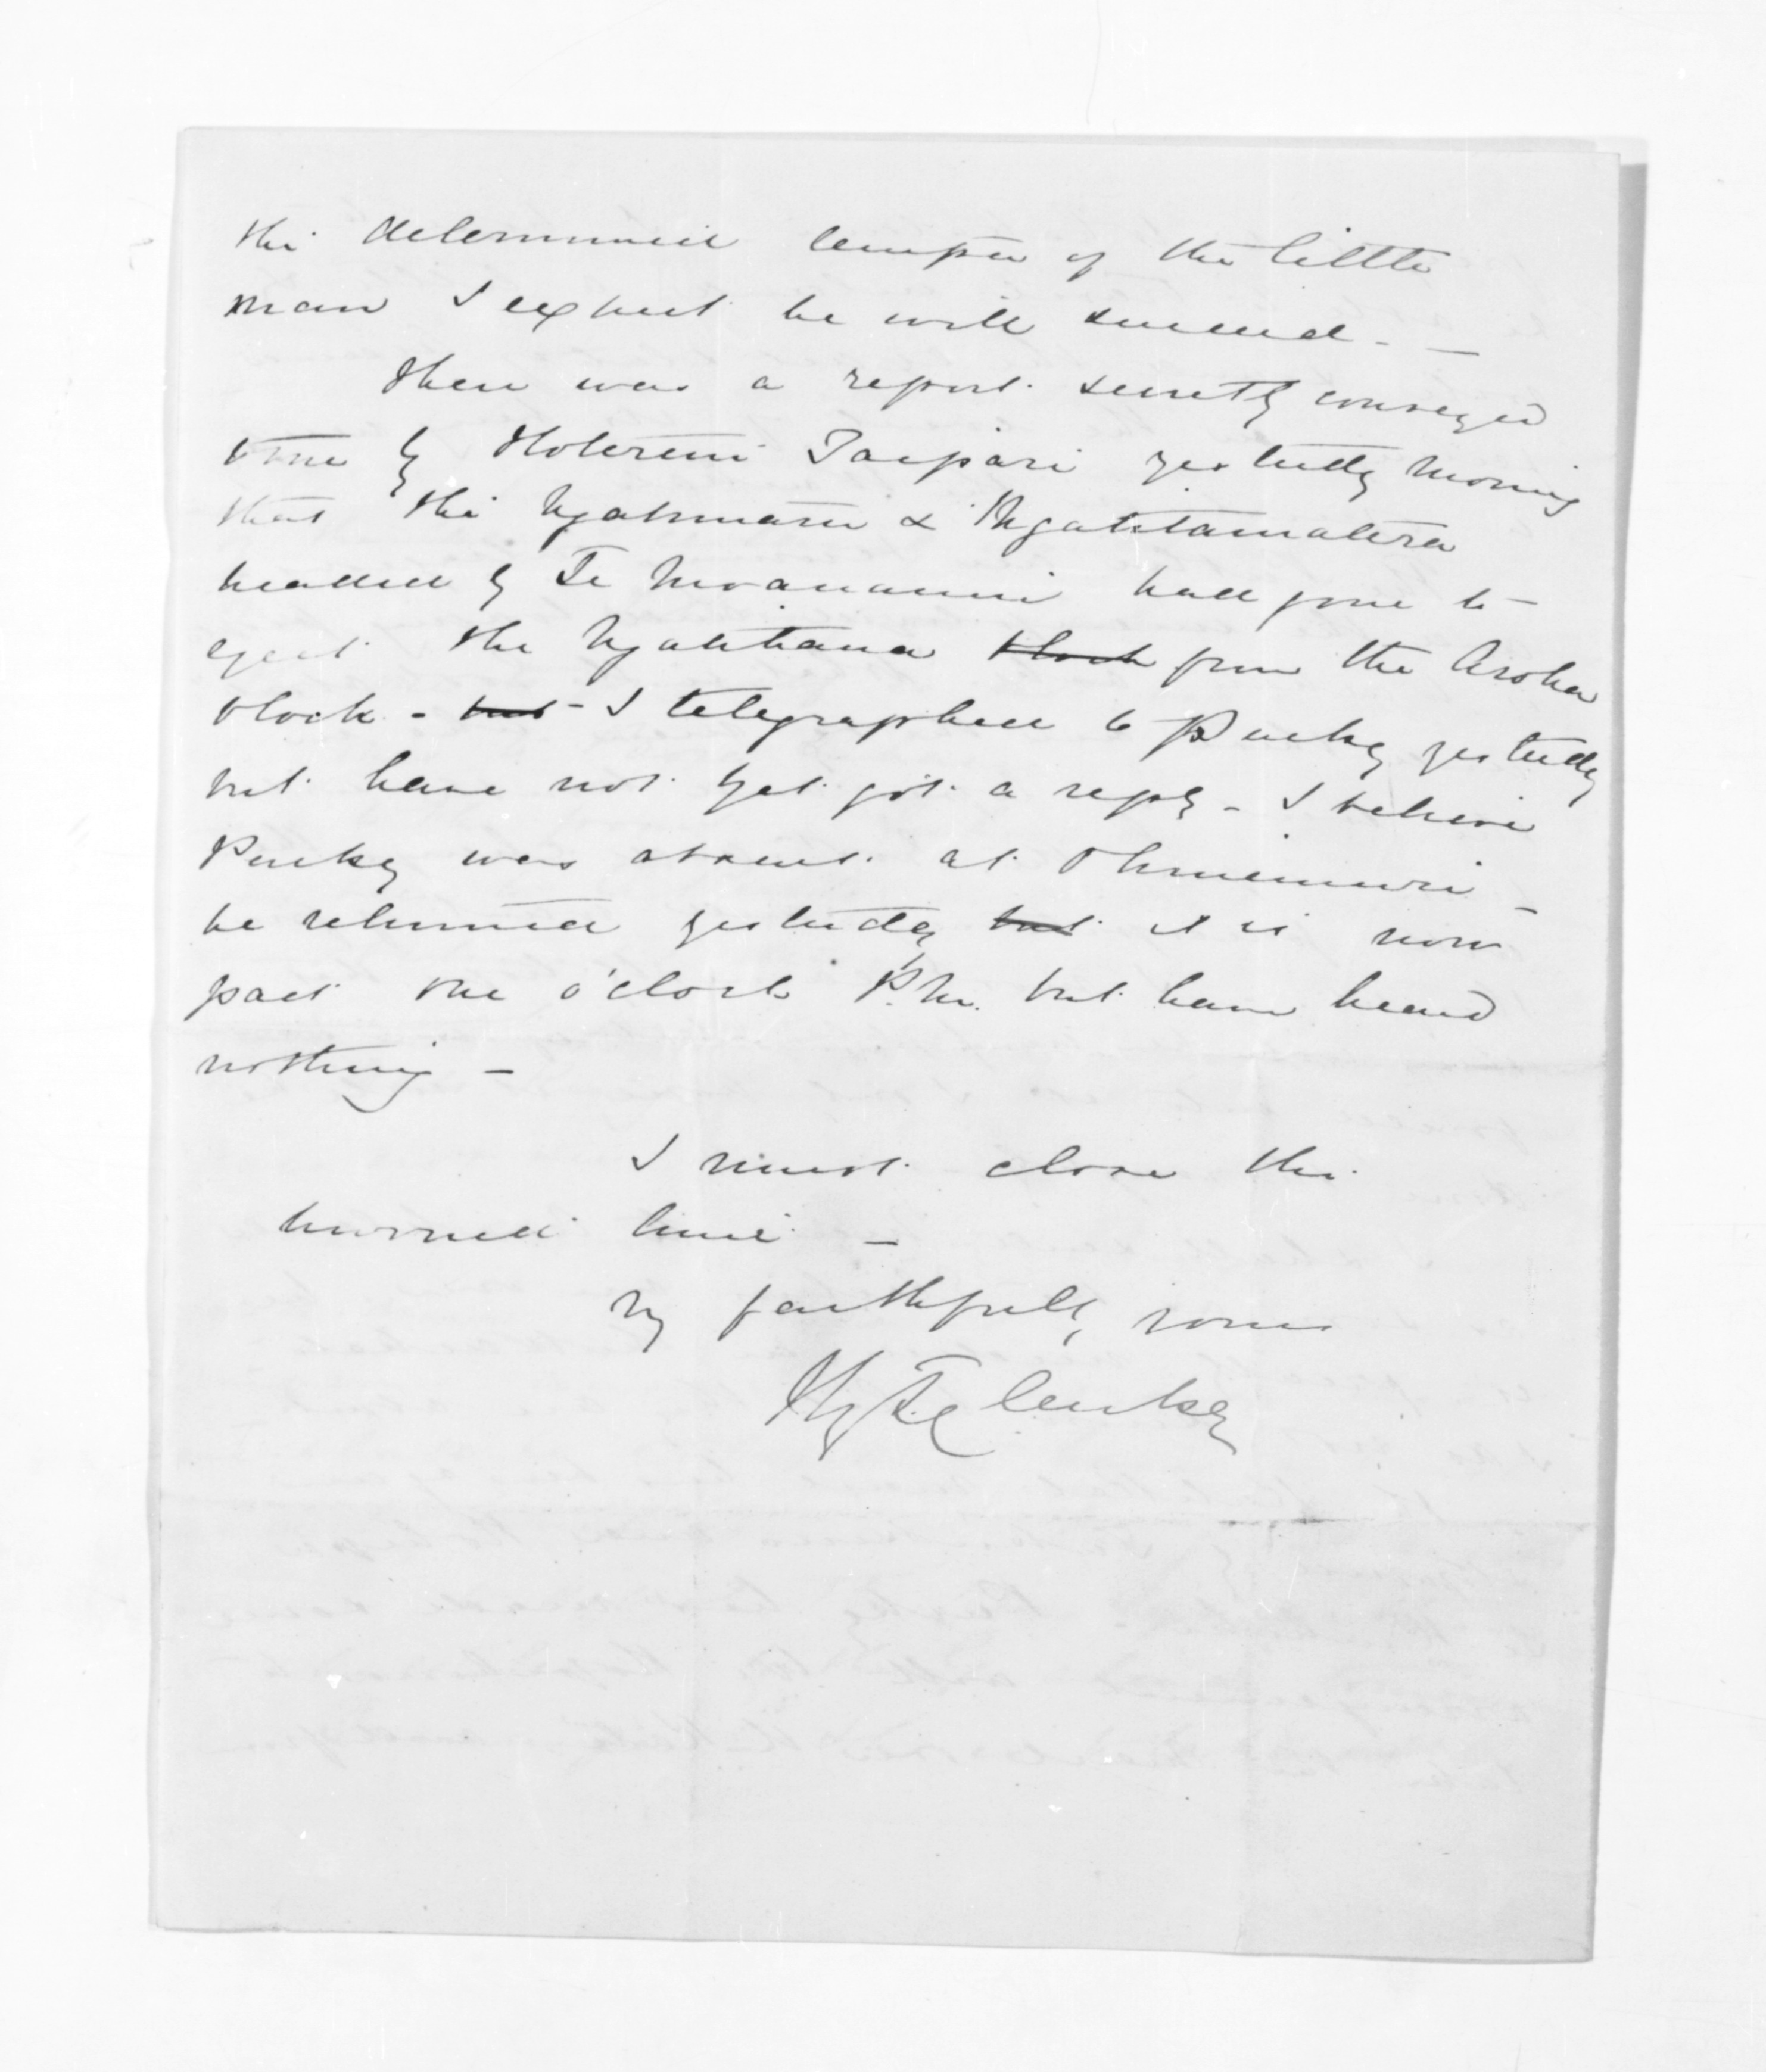 the determined temper of the little
man I expect he will succeed. —
There was a report secretly conveyed
to me by Hoterene Taipari yesterday morning
that the Ngatimaru & Ngatitamatera
headed by Te Moananui had gone to
eject the Ngatihaua block from the Aroha
block - but - I telegraphed to Puckey yesterday
but have not yet got a reply - I believe
Puckey was absent at Ohinemuri -
he returned yesterday but it is now
past one o'clock P.M. but have heard
nothing -
I must close this
hurried line -
Vy faithfully yours
Hy T. Clarke